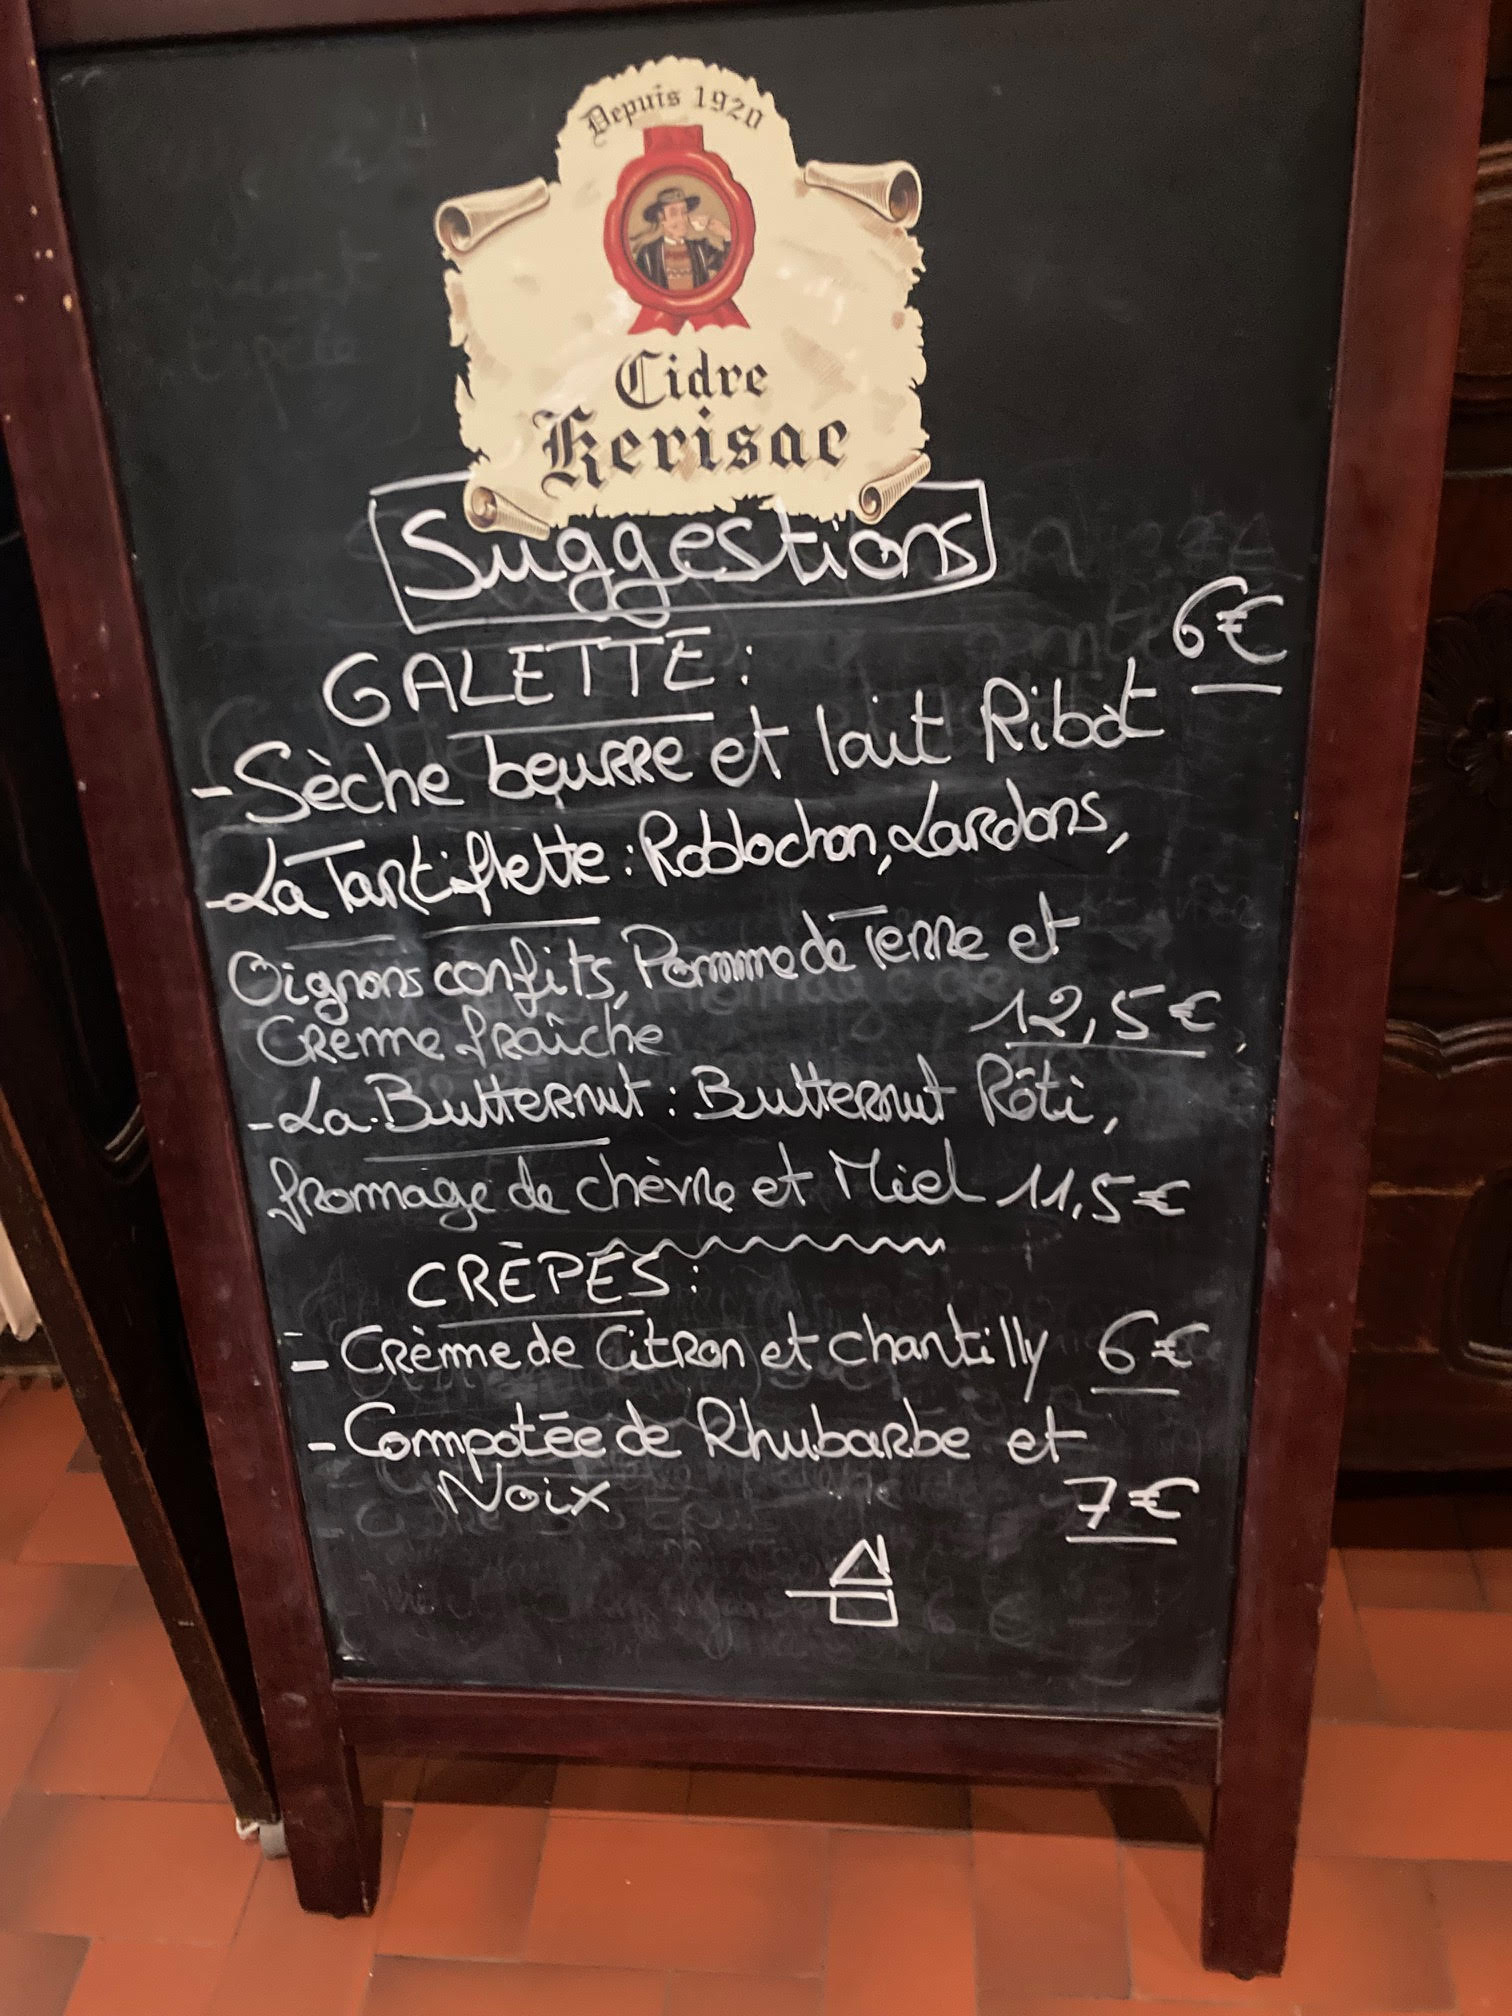 Depuis 1920
Cidre
Kerisac
Suggestions
GALETTE :
6€
- Sèche beurre et lait Ribot
- La Tartiflette : Roblochon, Lardons,
Oignons confits, Pomme de Terre et
Crème fraîche 12,5€
- La Butternut : Butternut Rôti,
fromage de chèvre et Miel 11,5€
CRÈPES :
- Crème de Citron et chantilly 6€
- Compotée de Rhubarbe et
Noix 7€